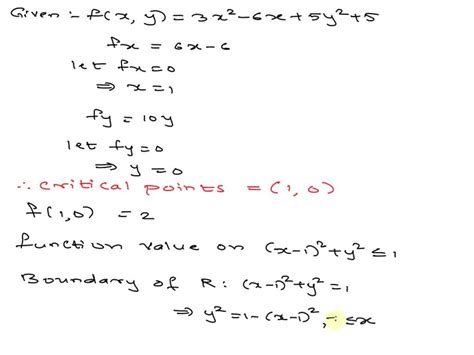 Given :- f(x, y) = 3x² - 6x + 5y² + 5
fx = 6x - 6
let fx = 0
⇒ x = 1
fy = 10y
let fy = 0
⇒ y = 0
∴ critical points = (1, 0)
f(1, 0) = 2
function value on (x-1)² + y² ≤ 1
Boundary of R : (x-1)² + y² = 1
⇒ y² = 1 - (x-1)², - ≤ x